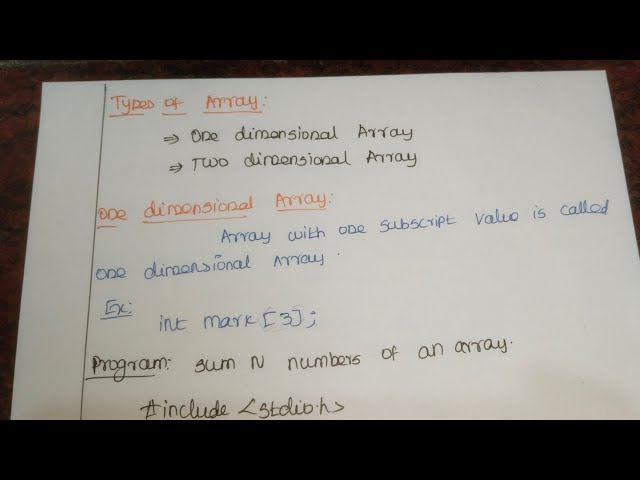 Types of Array:
⇒ One dimensional Array
⇒ Two dimensional Array
One dimensional Array:
Array with one subscript value is called
one dimensional Array.
Ex:
int mark[3];
Program: sum N numbers of an array.
#include <stdio.h>